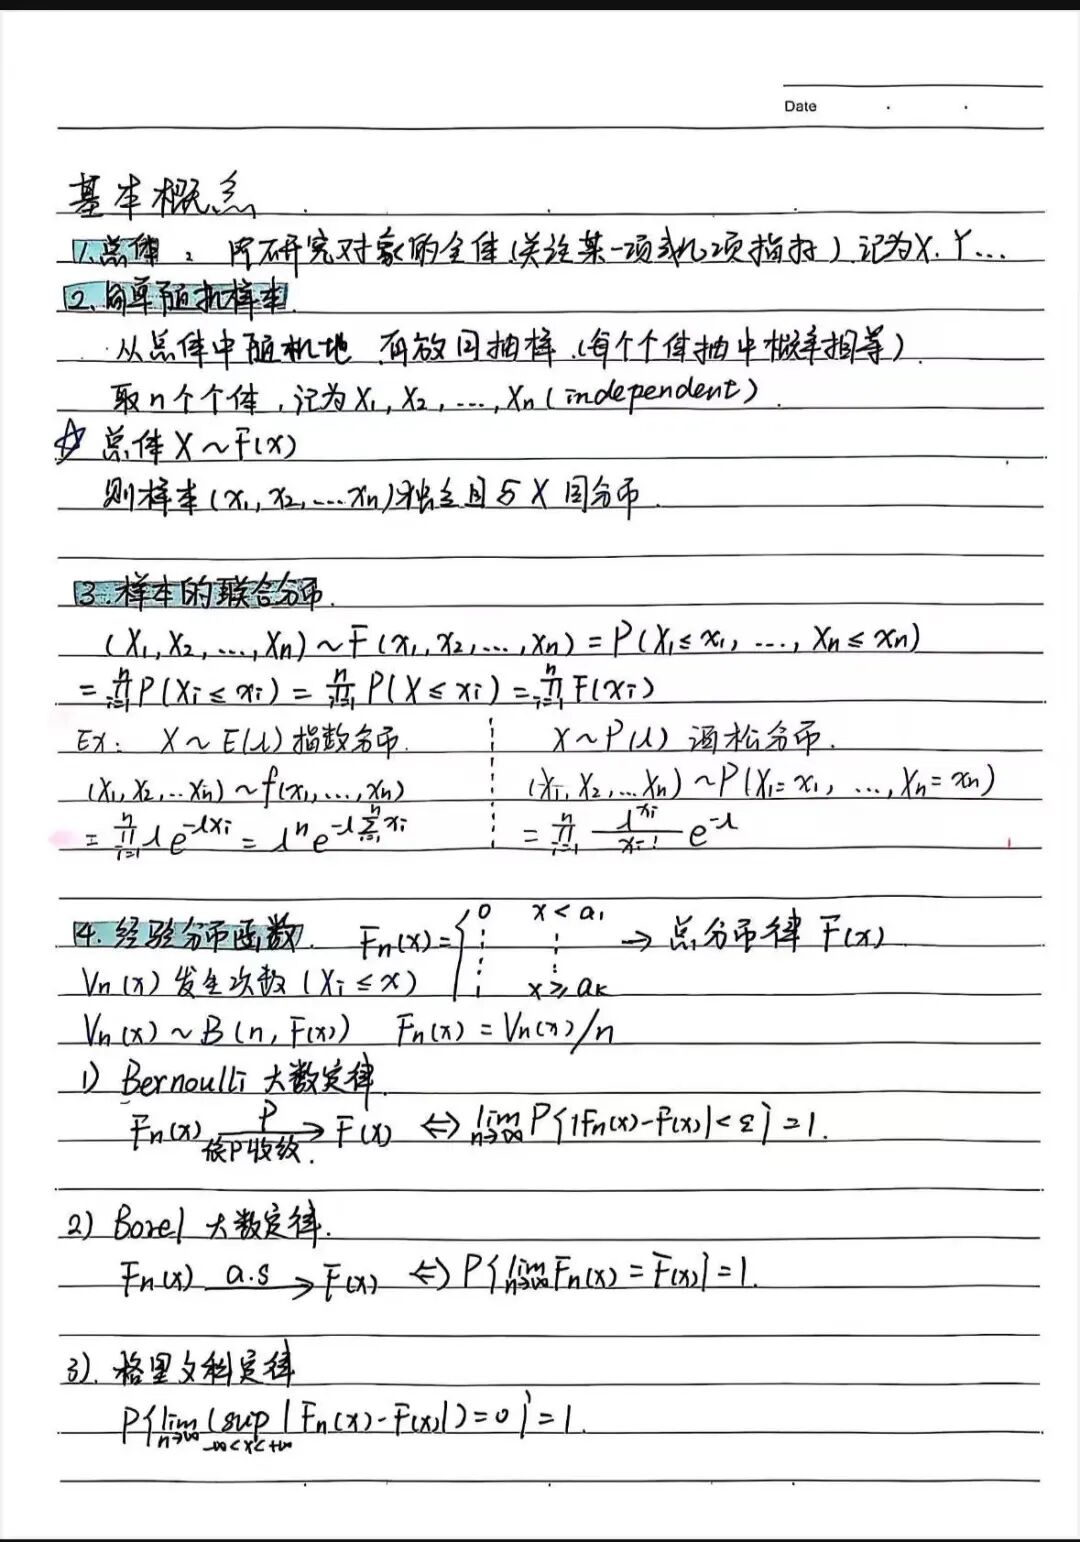 Date
基本概念
1.总体：所研究对象的全体(关注某一项或几项指标)记为X.Y...
2.简单随机样本
从总体中随机地 有放回抽样(每个个体抽中概率相等)
取n个个体,记为X₁,X₂,...,Xn(independent).
☆总体X~F(x)
则样本(x₁,x₂,...xn)独立且与X同分布.
3.样本的联合分布.
(X₁,X₂,...,Xn)~F(x₁,x₂,...,xn)=P(X₁≤x₁,...,Xn≤xn)
=∏ᵢ₌₁ⁿP(Xi≤xi)=∏ᵢ₌₁ⁿP(X≤xi)=∏ᵢ₌₁ⁿF(xi)
Ex: X~E(λ)指数分布. X~P(λ)泊松分布.
(X₁,X₂,...Xn)~f(x₁,...,xn) (X₁,X₂,...Xn)~P(X₁=x₁,...,Xn=xn)
=∏ᵢ₌₁ⁿλe^(-λxi)=λⁿe^(-λ∑ᵢ₌₁ⁿxi) =∏ᵢ₌₁ⁿ λ^(xi)/xi! e^(-λ)
4.经验分布函数. Fn(x)={0 x<a₁ ⋮ 1 x≥ak →总分布律F(x)
Vn(x)发生次数(Xi≤x)
Vn(x)~B(n,F(x)) Fn(x)=Vn(x)/n
1) Bernoulli 大数定律.
Fn(x) —P→ 依P收敛. F(x) ⇔ lim n→∞ P{|Fn(x)-F(x)|<ε}=1.
2) Borel 大数定律.
Fn(x) —a.s→ F(x) ⇔ P{lim n→∞ Fn(x)=F(x)}=1.
3).格里文科定律
P{lim n→∞ (sup -∞<x<+∞ |Fn(x)-F(x)|)=0}=1.